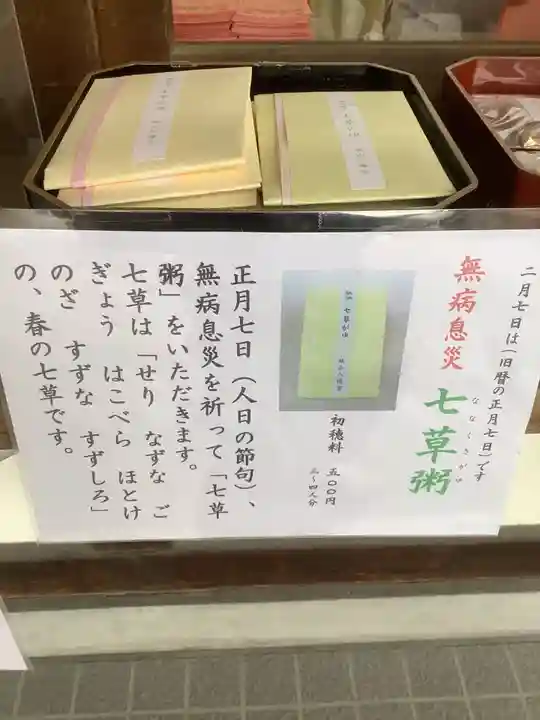 二月七日は(旧暦の正月七日)です
無病息災 七草粥
ななくさがゆ
初穂料 五〇〇円
三~四人分
七草がゆ
正月七日(人日の節句)、
無病息災を祈って「七草
粥」をいただきます。
七草は「せり なずな ご
ぎょう はこべら ほとけ
のざ すずな すずしろ」
の、春の七草です。